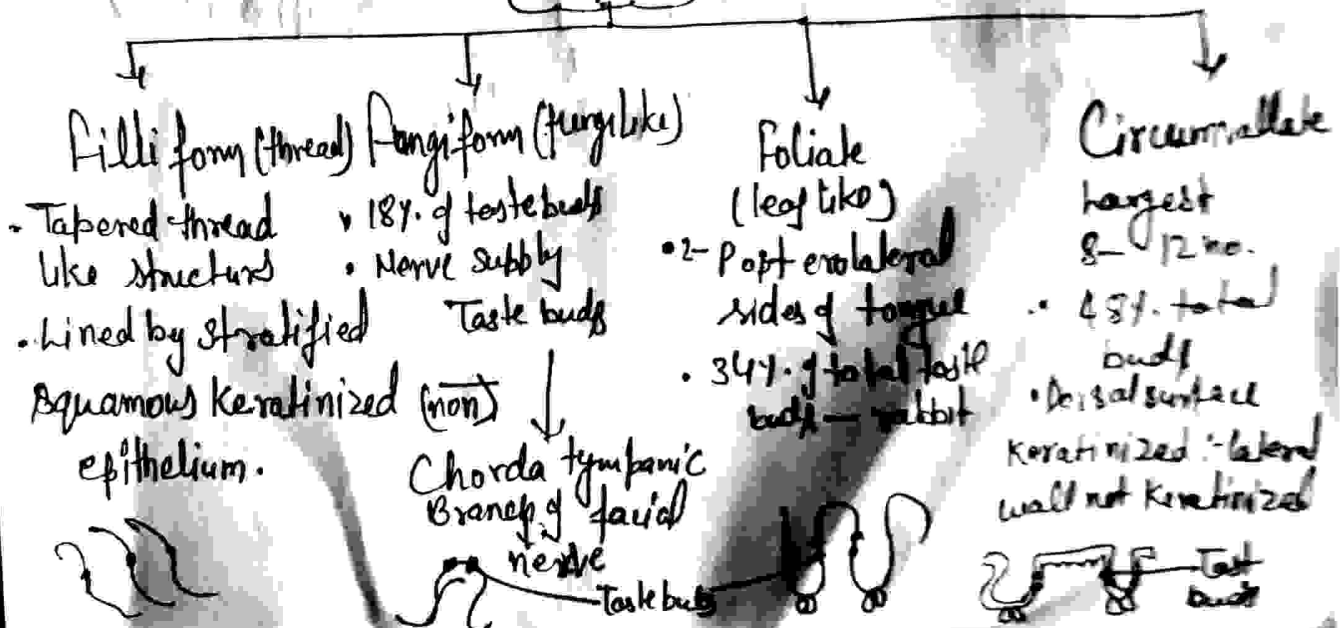 Filli form (thread)
• Tapered thread
like structures
• Lined by stratified
squamous keratinized (non)
epithelium.
Fungiform (fungi like)
• 18% of taste buds
• Nerve supply
Taste buds
Chorda tympanic
Branch of facial
nerve
Taste buds
Foliate
(leaf like)
• 2- Post erolateral
sides of tongue
• 34% of total taste
buds — rabbit
Circumvallate
Largest
8- 12 no.
• 48% total
buds
• Dorsal surface
Keratinized :- lateral
wall not Keratinized
Taste
buds